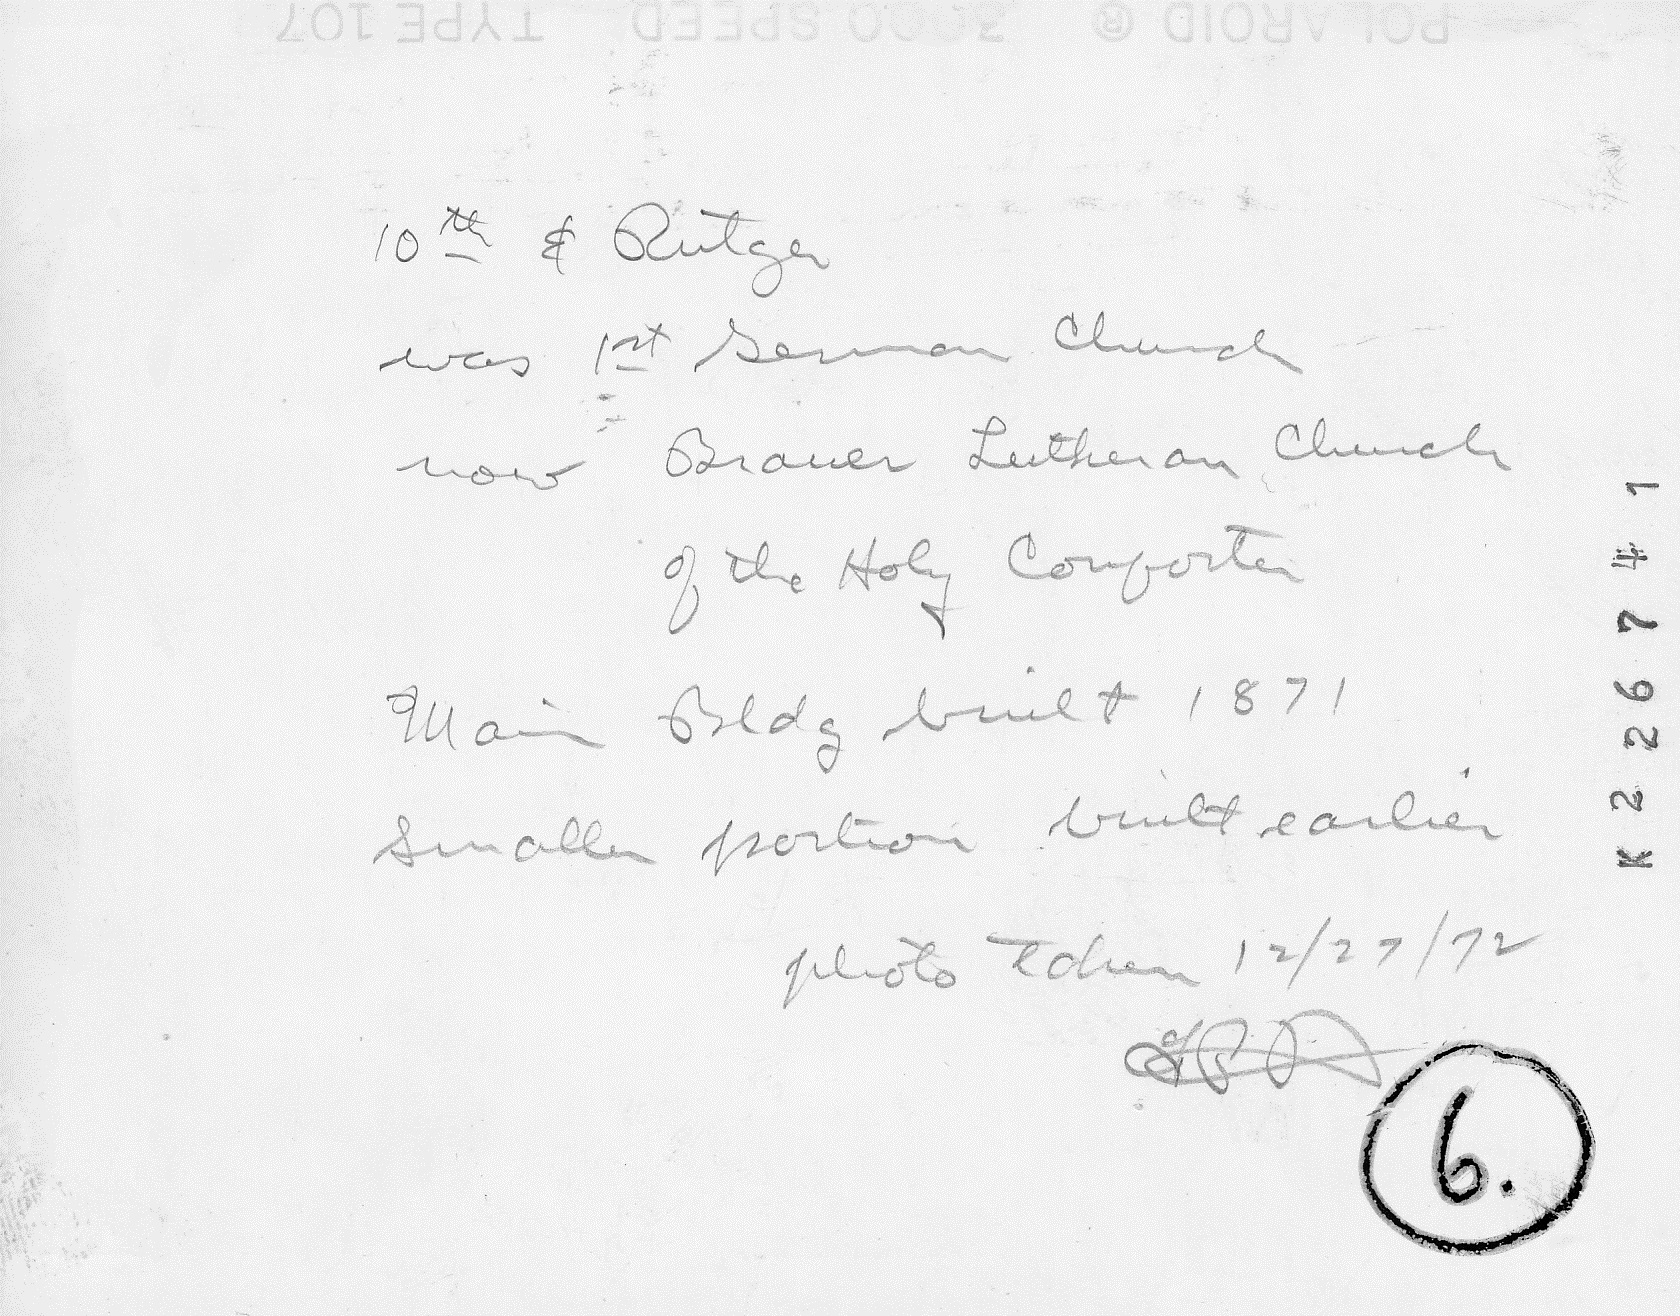 POLAROID ® 3000 SPEED TYPE 107
10th & Rutger
was 1st German Church
now Brauer Lutheran Church
of the Holy Comforter
Main Bldg built 1871
smaller portion built earlier
photo taken 12/27/72
6.
K226741